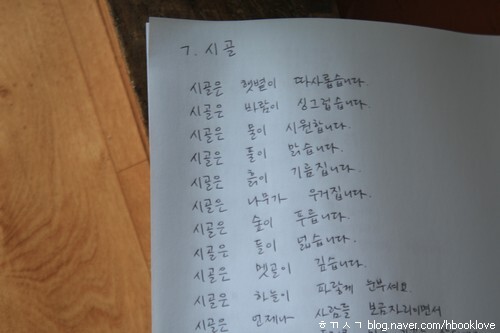 7. 시골
시골은 햇볕이 따사롭습니다.
시골은 바람이 싱그럽습니다.
시골은 물이 시원합니다.
시골은 돌이 맑습니다.
시골은 흙이 기름집니다.
시골은 나무가 우거집니다.
시골은 숲이 푸릅니다.
시골은 들이 넓습니다.
시골은 멧골이 깊습니다.
시골은 하늘이 파랗게 눈부셔요
시골은 언제나 사람들 보금자리이면서
ㅎㄲㅅㄱ blog.naver.com/hbooklove